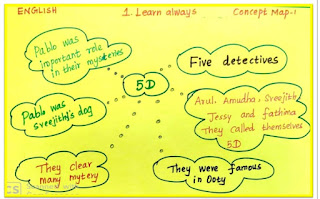 ENGLISH 1. Learn always Concept Map-1
Pablo was
important role
in their mysteries
Five detectives
5D
Pablo was
sreejith's dog
Arul, Amudha, Sreejith,
Jessy and fathima
They called themselves
5D
They clear
many mytery
They were famous
in Ooty
CS